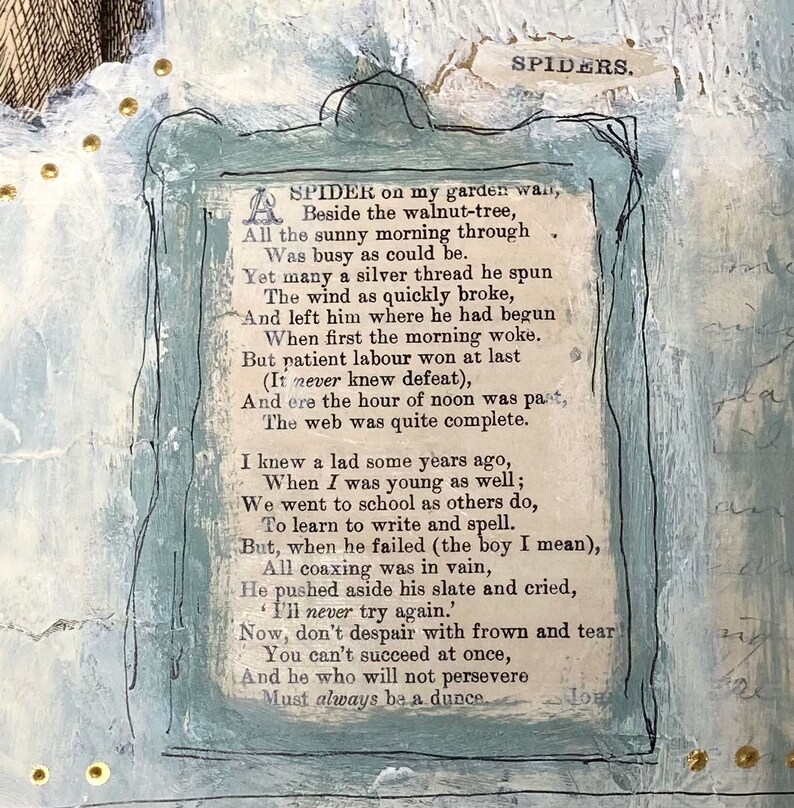 SPIDERS.
A SPIDER on my garden wall,
Beside the walnut-tree,
All the sunny morning through
Was busy as could be.
Yet many a silver thread he spun
The wind as quickly broke,
And left him where he had begun
When first the morning woke.
But patient labour won at last
(It never knew defeat),
And ere the hour of noon was past,
The web was quite complete.
I knew a lad some years ago,
When I was young as well;
We went to school as others do,
To learn to write and spell.
But, when he failed (the boy I mean),
All coaxing was in vain,
He pushed aside his slate and cried,
‘I'll never try again.’
Now, don't despair with frown and tear
You can't succeed at once,
And he who will not persevere
Must always be a dunce.